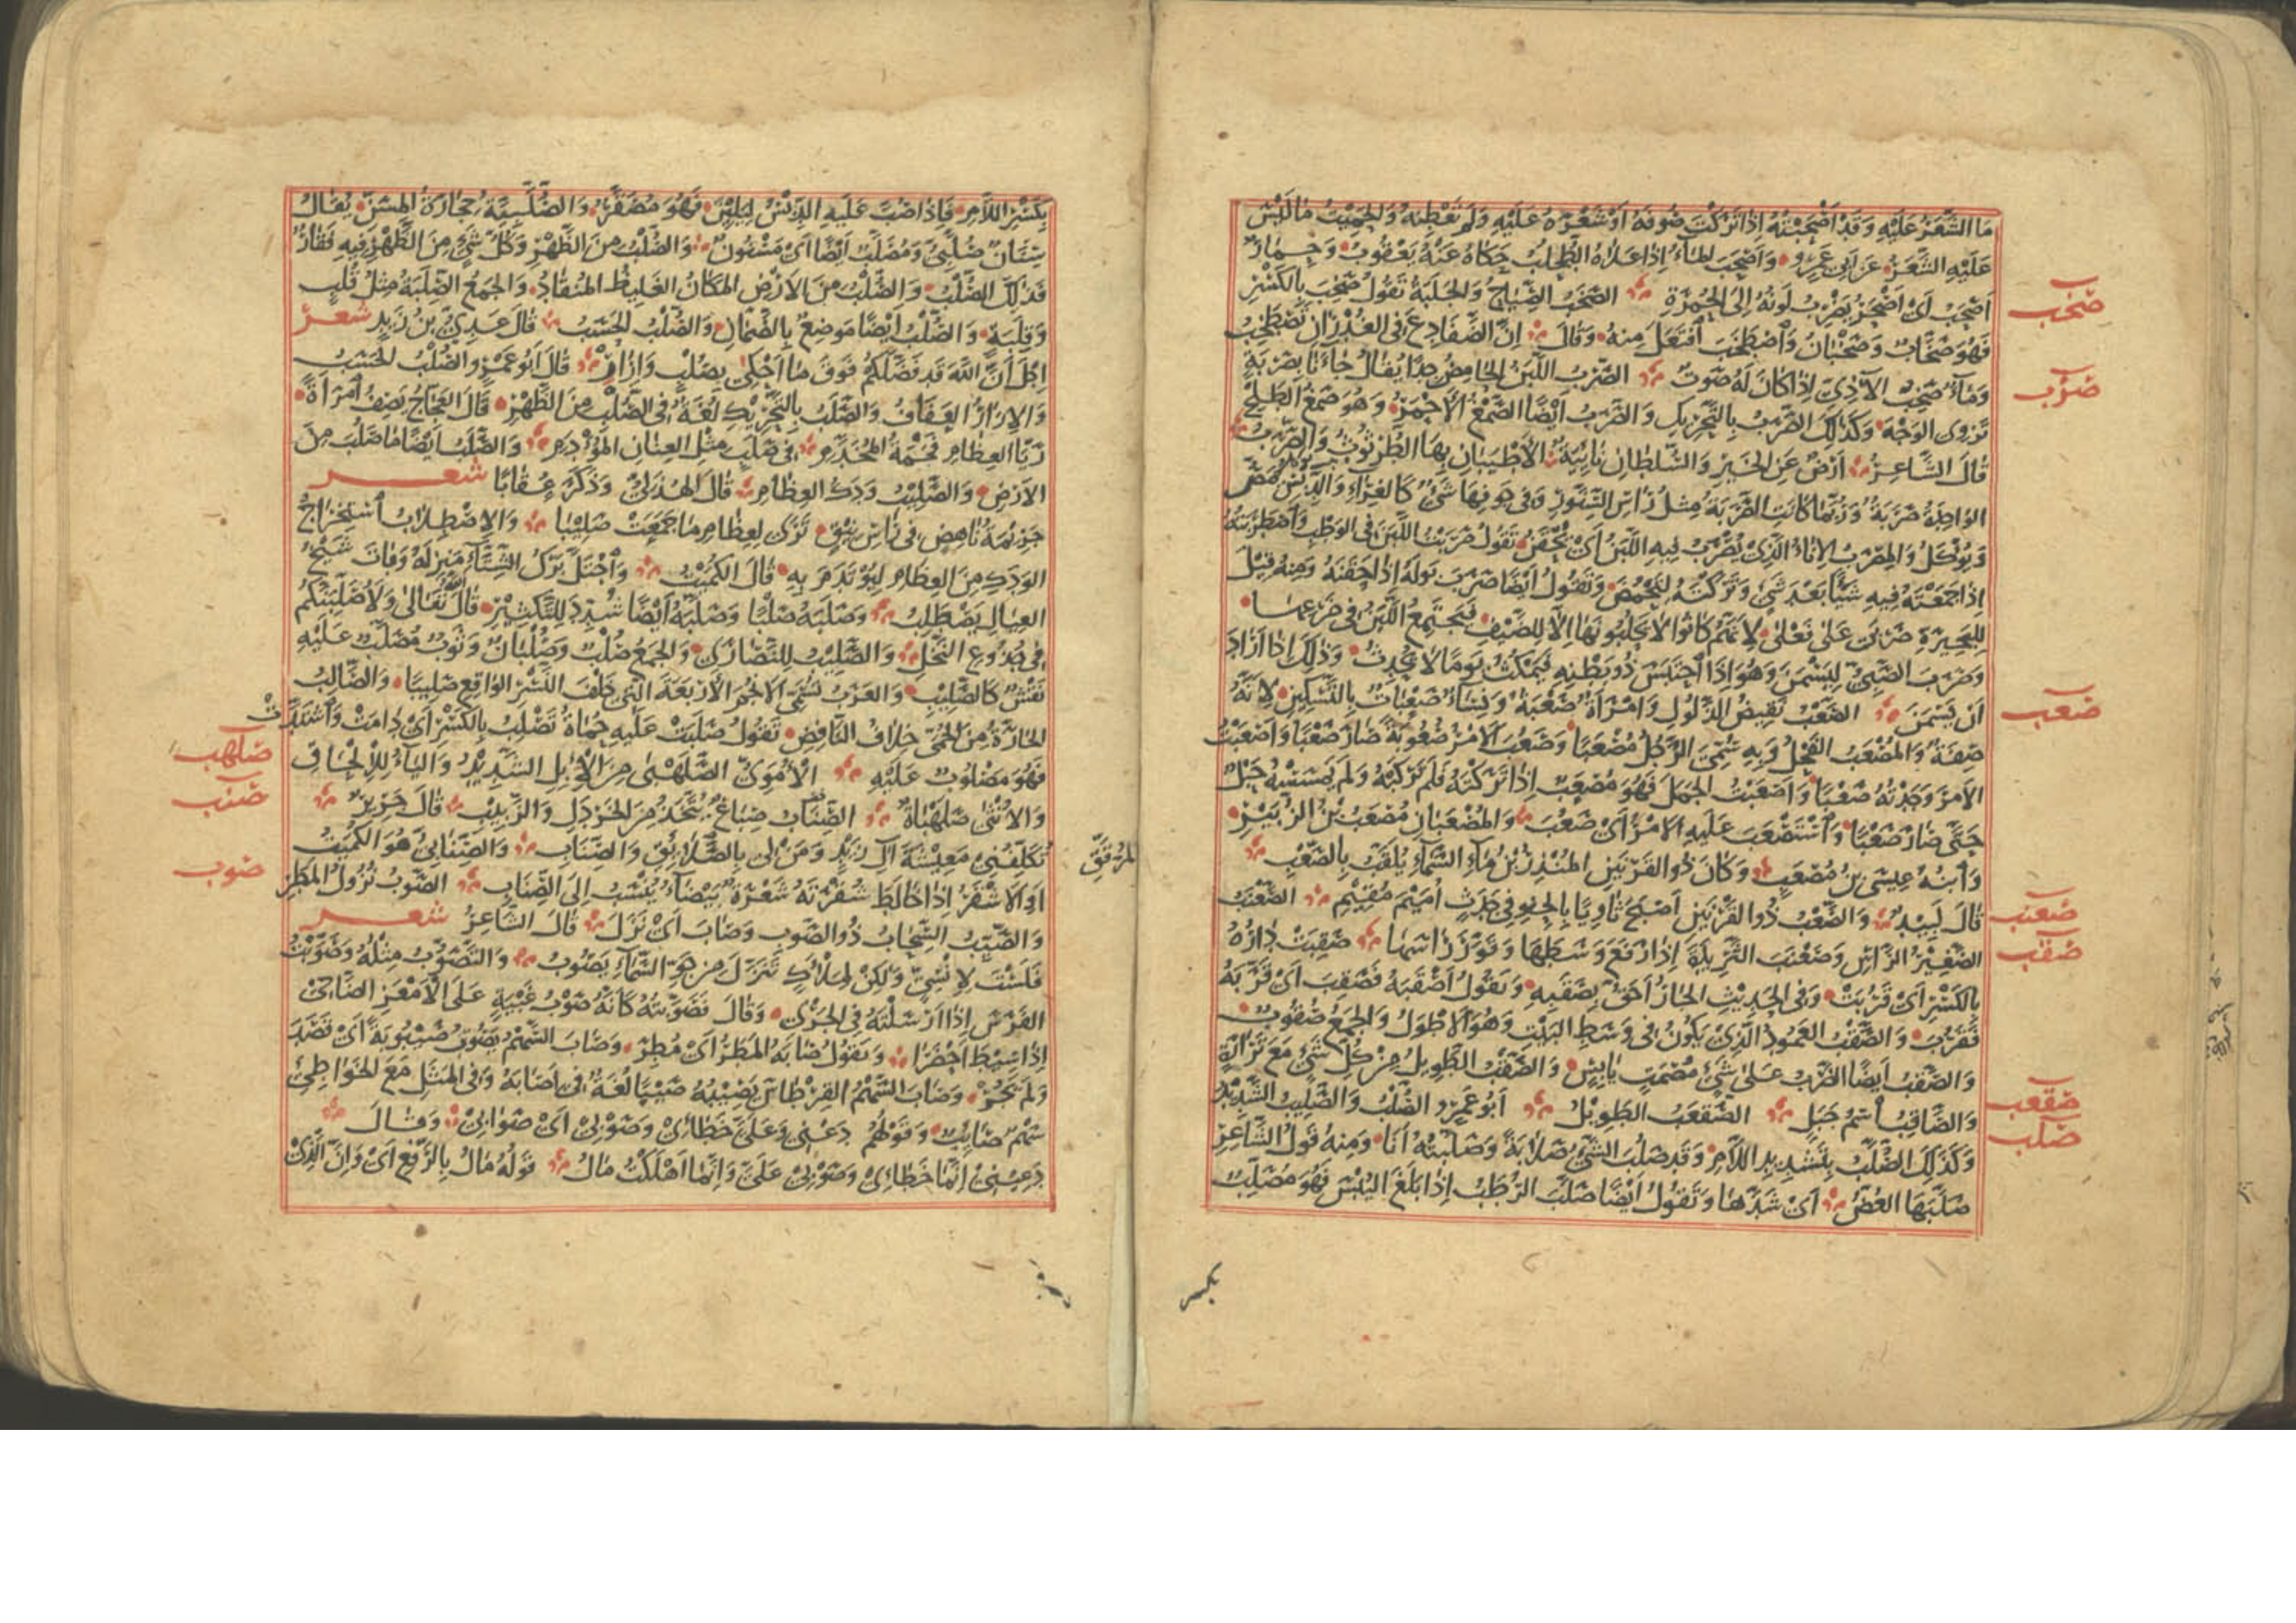 ما الشَّعَرُ عَلَيْهِ وَقَدْ اَصْحَبْتُهُ اِذَا تَرَكْتَ صُوفَهُ اَوْ شَعْرَهُ عَلَيْهِ وَلَمْ تَعْطِنْهُ وَالحَمِيْتُ مَا لَيْسَ
عَلَيْهِ الشَّعَرُ عَنْ اَبِي عَمْرٍو وَاَصْحَبَ المَاءُ اِذَا عَلَاهُ الطُّحْلُبُ حَكَاهُ عَنْهُ يَعْقُوبُ وَحِمَارٌ
اَصْحَبُ اَىْ اَصْحَرُ يَضْرِبُ لَوْنُهُ اِلَى الحُمْرَةِ الصَّخَبُ الصِّيَاحُ وَالجَلَبَةُ تَقُولُ صَخِبَ بِالكَسْرِ
صخب
فَهُوَ صَخَّابٌ وَصَخْبَانُ وَاصْطَخَبَ افْتَعَلَ مِنْهُ وَقَالَ اِنَّ الضَّفَادِعَ فِى الغُدْرَانِ تَصْطَخِبُ
وَمَاءٌ صَخِبُ الآذِىِّ اِذَا كَانَ لَهُ صَوْتٌ الصَّرْبُ اللَّبَنُ الحَامِضُ جِدًّا يُقَالُ جَاءَنَا بِصَرْبَةٍ
صرب
تَزْوِى الوَجْهَ وَكَذَلِكَ الصَّرَبُ بِالتَّحْرِيكِ وَالصَّرَبُ اَيْضًا الصَّمْغُ الاَحْمَرُ وَهُوَ صَمْغُ الطَّلْحِ
قَالَ الشَّاعِرُ اَرْضٌ عَنِ الخَيْرِ وَالسُّلْطَانِ نَائِيَةٌ الاَطْيَبَانِ بِهَا الطُّرْثُوثُ وَالصَّرَبُ
الوَاحِدَةُ صَرَبَةٌ وَرُبَّمَا كَانَتِ الصَّرَبَةُ مِثْلَ رَاْسِ السِّنَّوْرِ وَفِى جَوْفِهَا شَىْءٌ كَالغِرَاءِ وَالدِّبْسِ يُمَصُّ
وَيُؤْكَلُ وَالمِصْرَبُ الاِنَاءُ الَّذِىْ يُصْرَبُ فِيهِ اللَّبَنُ اَىْ يُحْقَنُ تَقُولُ صَرَبْتُ اللَّبَنَ فِى الوَطْبِ وَاصْطَرَبْتُهُ
اِذَا جَمَعْتَهُ فِيهِ شَيْئًا بَعْدَ شَىْءٍ وَتَرَكْتَهُ لِيَحْمَضَ وَتَقُولُ اَيْضًا صَرَبَ بَوْلَهُ اِذَا حَقَنَهُ وَمِنْهُ قِيلَ
لِلبَحِيرَةِ صَرْبَى عَلَى فَعْلَى لِاَنَّهُمْ كَانُوا لَا يَحْلُبُونَهَا اِلَّا لِلضَّيْفِ فَيَجْتَمِعُ اللَّبَنُ فِى ضَرْعِهَا
وَصَرَبَ الصَّبِىُّ لِيَسْمَنَ وَهُوَ اِذَا احْتَبَسَ ذُو بَطْنِهِ فَيَمْكُثُ يَوْمًا لَا يُحْدِثُ وَذَلِكَ اِذَا اَرَادَ
اَنْ يَسْمَنَ الصَّعْبُ نَقِيضُ الذَّلُولِ وَامْرَاَةٌ صَعْبَةٌ وَنِسَاءٌ صَعْبَاتٌ بِالتَّسْكِينِ لِاَنَّهُ
صعب
صِفَةٌ وَالمُصْعَبُ الفَحْلُ وَبِهِ سُمِّىَ الرَّجُلُ مُصْعَبًا وَصَعُبَ الاَمْرُ صُعُوبَةً صَارَ صَعْبًا وَاَصْعَبْتُ
الاَمْرَ وَجَدْتُهُ صَعْبًا وَاَصْعَبْتُ الجَمَلَ فَهُوَ مُصْعَبٌ اِذَا تَرَكْتَهُ فَلَمْ تَرْكَبْهُ وَلَمْ يَمْسَسْهُ حَبْلٌ
حَتَّى صَارَ صَعْبًا وَاسْتَصْعَبَ عَلَيْهِ الاَمْرُ اَىْ صَعُبَ وَالمُصْعَبَانِ مُصْعَبُ بْنُ الزُّبَيْرِ
وَابْنُهُ عِيسَى بْنُ مُصْعَبٍ وَكَانَ ذُو القَرْنَيْنِ المُنْذِرُ بْنُ مَاءِ السَّمَاءِ يُلَقَّبُ بِالصَّعْبِ
قَالَ لَبِيدٌ وَالصَّعْبُ ذُو القَرْنَيْنِ اَصْبَحَ ثَاوِيًا بِالحِنْوِ فِى جَدَثٍ اُمَيْمَ مُقِيْمِ الصَّعْنَبُ
صعنب
الصَّغِيْرُ الرَّاْسِ وَصَعْنَبَ الثَّرِيدَةَ اِذَا رَفَعَ وَسَطَهَا وَقَوَّرَ رَاْسَهَا صَقِبَتْ دَارُهُ
صقب
بِالكَسْرِ اَىْ قَرُبَتْ وَفِى الحَدِيْثِ الجَارُ اَحَقُّ بِصَقَبِهِ وَتَقُولُ اَصْقَبَهُ فَصَقِبَ اَىْ قَرَّبَهُ
فَقَرُبَ وَالصَّقْبُ العَمُودُ الَّذِىْ يَكُونُ فِى وَسَطِ البَيْتِ وَهُوَ الاَطْوَلُ وَالجَمْعُ صُقُوبٌ
وَالصَّقْبُ اَيْضًا الضَّرْبُ عَلَى شَىْءٍ مُصْمَتٍ يَابِسٍ وَالصَّقْبُ الطَّوِيلُ مِنْ كُلِّ شَىْءٍ مَعَ تَرَارَةٍ
وَالصَّاقِبُ اسْمُ جَبَلٍ الصَّقْعَبُ الطَّوِيْلُ اَبُو عَمْرٍو الصُّلْبُ وَالصَّلِيبُ الشَّدِيْدُ
صقعب
صلب
وَكَذَلِكَ الصُّلَّبُ بِتَشْدِيدِ اللَّامِ وَقَدْ صَلُبَ الشَّىْءُ صَلَابَةً وَصَلَّبْتُهُ اَنَا وَمِنْهُ قَوْلُ الشَّاعِرِ
صَلَّبَهَا العُضُّ اَىْ شَدَّهَا وَتَقُولُ اَيْضًا صَلَّبَ الرُّطَبُ اِذَا بَلَغَ اليُبْسَ فَهُوَ مُصَلِّبٌ
بكسر
بِكَسْرِ اللَّامِ فَاِذَا صُبَّ عَلَيْهِ الدِّبْسُ لِيَلِيْنَ فَهُوَ مُصَقَّرٌ وَالصُّلَّبِيَّةُ حِجَارَةُ المِسَنِّ يُقَالُ
سِنَانٌ صُلَّبِىٌّ وَمُصَلَّبٌ اَيْضًا اَىْ مَسْنُونٌ وَالصُّلْبُ مِنَ الظَّهْرِ وَكُلُّ شَىْءٍ مِنَ الظَّهْرِ فِيهِ فَقَارٌ
فَذَلِكَ الصُّلْبُ وَالصُّلْبُ مِنَ الاَرْضِ المَكَانُ الغَلِيظُ المُنْقَادُ وَالجَمْعُ الصِّلَبَةُ مِثْلُ قُلْبٍ
وَقِلَبَةٍ وَالصُّلْبُ اَيْضًا مَوْضِعٌ بِالصَّمَّانِ وَالصُّلْبُ الحَسَبُ قَالَ عَدِىُّ بْنُ زَيْدٍ شعر
اِجْلَ اَنَّ اللهَ قَدْ فَضَّلَكُمْ فَوْقَ مَا اَحْكِى بِصُلْبٍ وَاِزَارٍ قَالَ اَبُو عَمْرٍو الصُّلْبُ الحَسَبُ
وَالاِزَارُ العَفَافُ وَالصَّلَبُ بِالتَّحْرِيْكِ لُغَةٌ فِى الصُّلْبِ مِنَ الظَّهْرِ قَالَ العَجَّاجُ يَصِفُ امْرَاَةً
رَيَّا العِظَامِ فَخْمَةُ المُخَدَّمِ فِى صَلَبٍ مِثْلِ العِنَانِ المُؤْدَمِ وَالصَّلَبُ اَيْضًا مَا صَلُبَ مِنَ
الاَرْضِ وَالصَّلِيْبُ وَدَكُ العِظَامِ قَالَ الهُذَلِىُّ وَذَكَرَ عُقَابًا شعر
جَرِيْمَةَ نَاهِضٍ فِى رَاْسِ نِيْقٍ تَرَى لِعِظَامِ مَا جَمَعَتْ صَلِيْبًا وَالاِصْطِلَابُ اسْتِخْرَاجُ
الوَدَكِ مِنَ العِظَامِ لِيُؤْتَدَمَ بِهِ قَالَ الكُمَيْتُ وَاحْتَلَّ بَرْكُ الشِّتَاءِ مَنْزِلَهُ وَبَاتَ شَيْخُ
العِيَالِ يَصْطَلِبُ وَصَلَبَهُ صَلْبًا وَصَلَّبَهُ اَيْضًا شُدِّدَ لِلتَّكْثِيْرِ قَالَ اللهُ تَعَالَى وَلَاُصَلِّبَنَّكُمْ
فِى جُذُوعِ النَّخْلِ وَالصَّلِيْبُ لِلنَّصَارَى وَالجَمْعُ صُلُبٌ وَصُلْبَانٌ وَثَوْبٌ مُصَلَّبٌ عَلَيْهِ
نَقْشٌ كَالصَّلِيْبِ وَالعَرَبُ تُسَمِّى الاَنْجُمَ الاَرْبَعَةَ الَّتِى خَلْفَ النَّسْرِ الوَاقِعِ صَلِيبًا وَالصَّالِبُ
الحَارَّةُ مِنَ الحُمَّى خِلَافُ النَّافِضِ تَقُولُ صَلَبَتْ عَلَيْهِ حُمَّاهُ تَصْلِبُ بِالكَسْرِ اَىْ دَامَتْ وَاشْتَدَّتْ
فَهُوَ مَصْلُوبٌ عَلَيْهِ الاُمَوِىُّ الصَّلَهْبَى مِنَ الاِبِلِ الشَّدِيْدُ وَاليَاءُ لِلْاِلْحَاقِ
صلهب
وَالاُنْثَى صَلَهْبَاةٌ الصِّنَابُ صِبَاغٌ يُتَّخَذُ مِنَ الخَرْدَلِ وَالزَّبِيْبِ قَالَ جَرِيْرٌ
صنب
تُكَلِّفُنِى مَعِيْشَةَ آلِ زَيْدٍ وَمَنْ لِى بِالصَّلَائِقِ وَالصِّنَابِ وَالصِّنَابِىُّ هُوَ الكُمَيْتُ
المُرَقَّقِ
اَوِ الاَشْقَرُ اِذَا خَالَطَ شُقْرَتَهُ شَعْرَةٌ بَيْضَاءُ يُنْسَبُ اِلَى الصِّنَابِ الصَّوْبُ نُزُولُ المَطَرِ
صوب
وَالصَّيِّبُ السَّحَابُ ذُو الصَّوْبِ وَصَابَ اَىْ نَزَلَ قَالَ الشَّاعِرُ شعر
فَلَسْتَ لِاِنْسِىٍّ وَلَكِنْ لِمَلْاَكٍ تَنَزَّلَ مِنْ جَوِّ السَّمَاءِ يَصُوبُ وَالتَّصَوُّبُ مِثْلُهُ وَصَوَّبْتُ
الفَرَسَ اِذَا اَرْسَلْتَهُ فِى الجَرْىِ وَقَالَ فَصَوَّبْتُهُ كَاَنَّهُ صَوْبُ غَبْيَةٍ عَلَى الاَمْعَزِ الضَّاحِىْ
اِذَا سِيْطَ اَحْضَرَا وَتَقُولُ صَابَهُ المَطَرُ اَىْ مُطِرَ وَصَابَ السَّهْمُ يَصُوبُ صَيْبُوبَةً اَىْ قَصَدَ
وَلَمْ يَجُرْ وَصَابَ السَّهْمُ القِرْطَاسَ يَصِيْبُهُ صَيْبًا لُغَةٌ فِى اَصَابَهُ وَفِى المَثَلِ مَعَ الخَوَاطِئِ
سَهْمٌ صَائِبٌ وَقَوْلُهُمْ دَعْنِى وَعَلَىَّ خَطَائِىْ وَصَوْبِىْ اَىْ صَوَابِىْ وَقَالَ
دَعِيْنِىْ اِنَّمَا خَطَائِىْ وَصَوْبِىْ عَلَىَّ وَاِنَّمَا اَهْلَكْتُ مَالُ قَوْلُهُ مَالُ بِالرَّفْعِ اَىْ وَاِنَّ الَّذِىْ